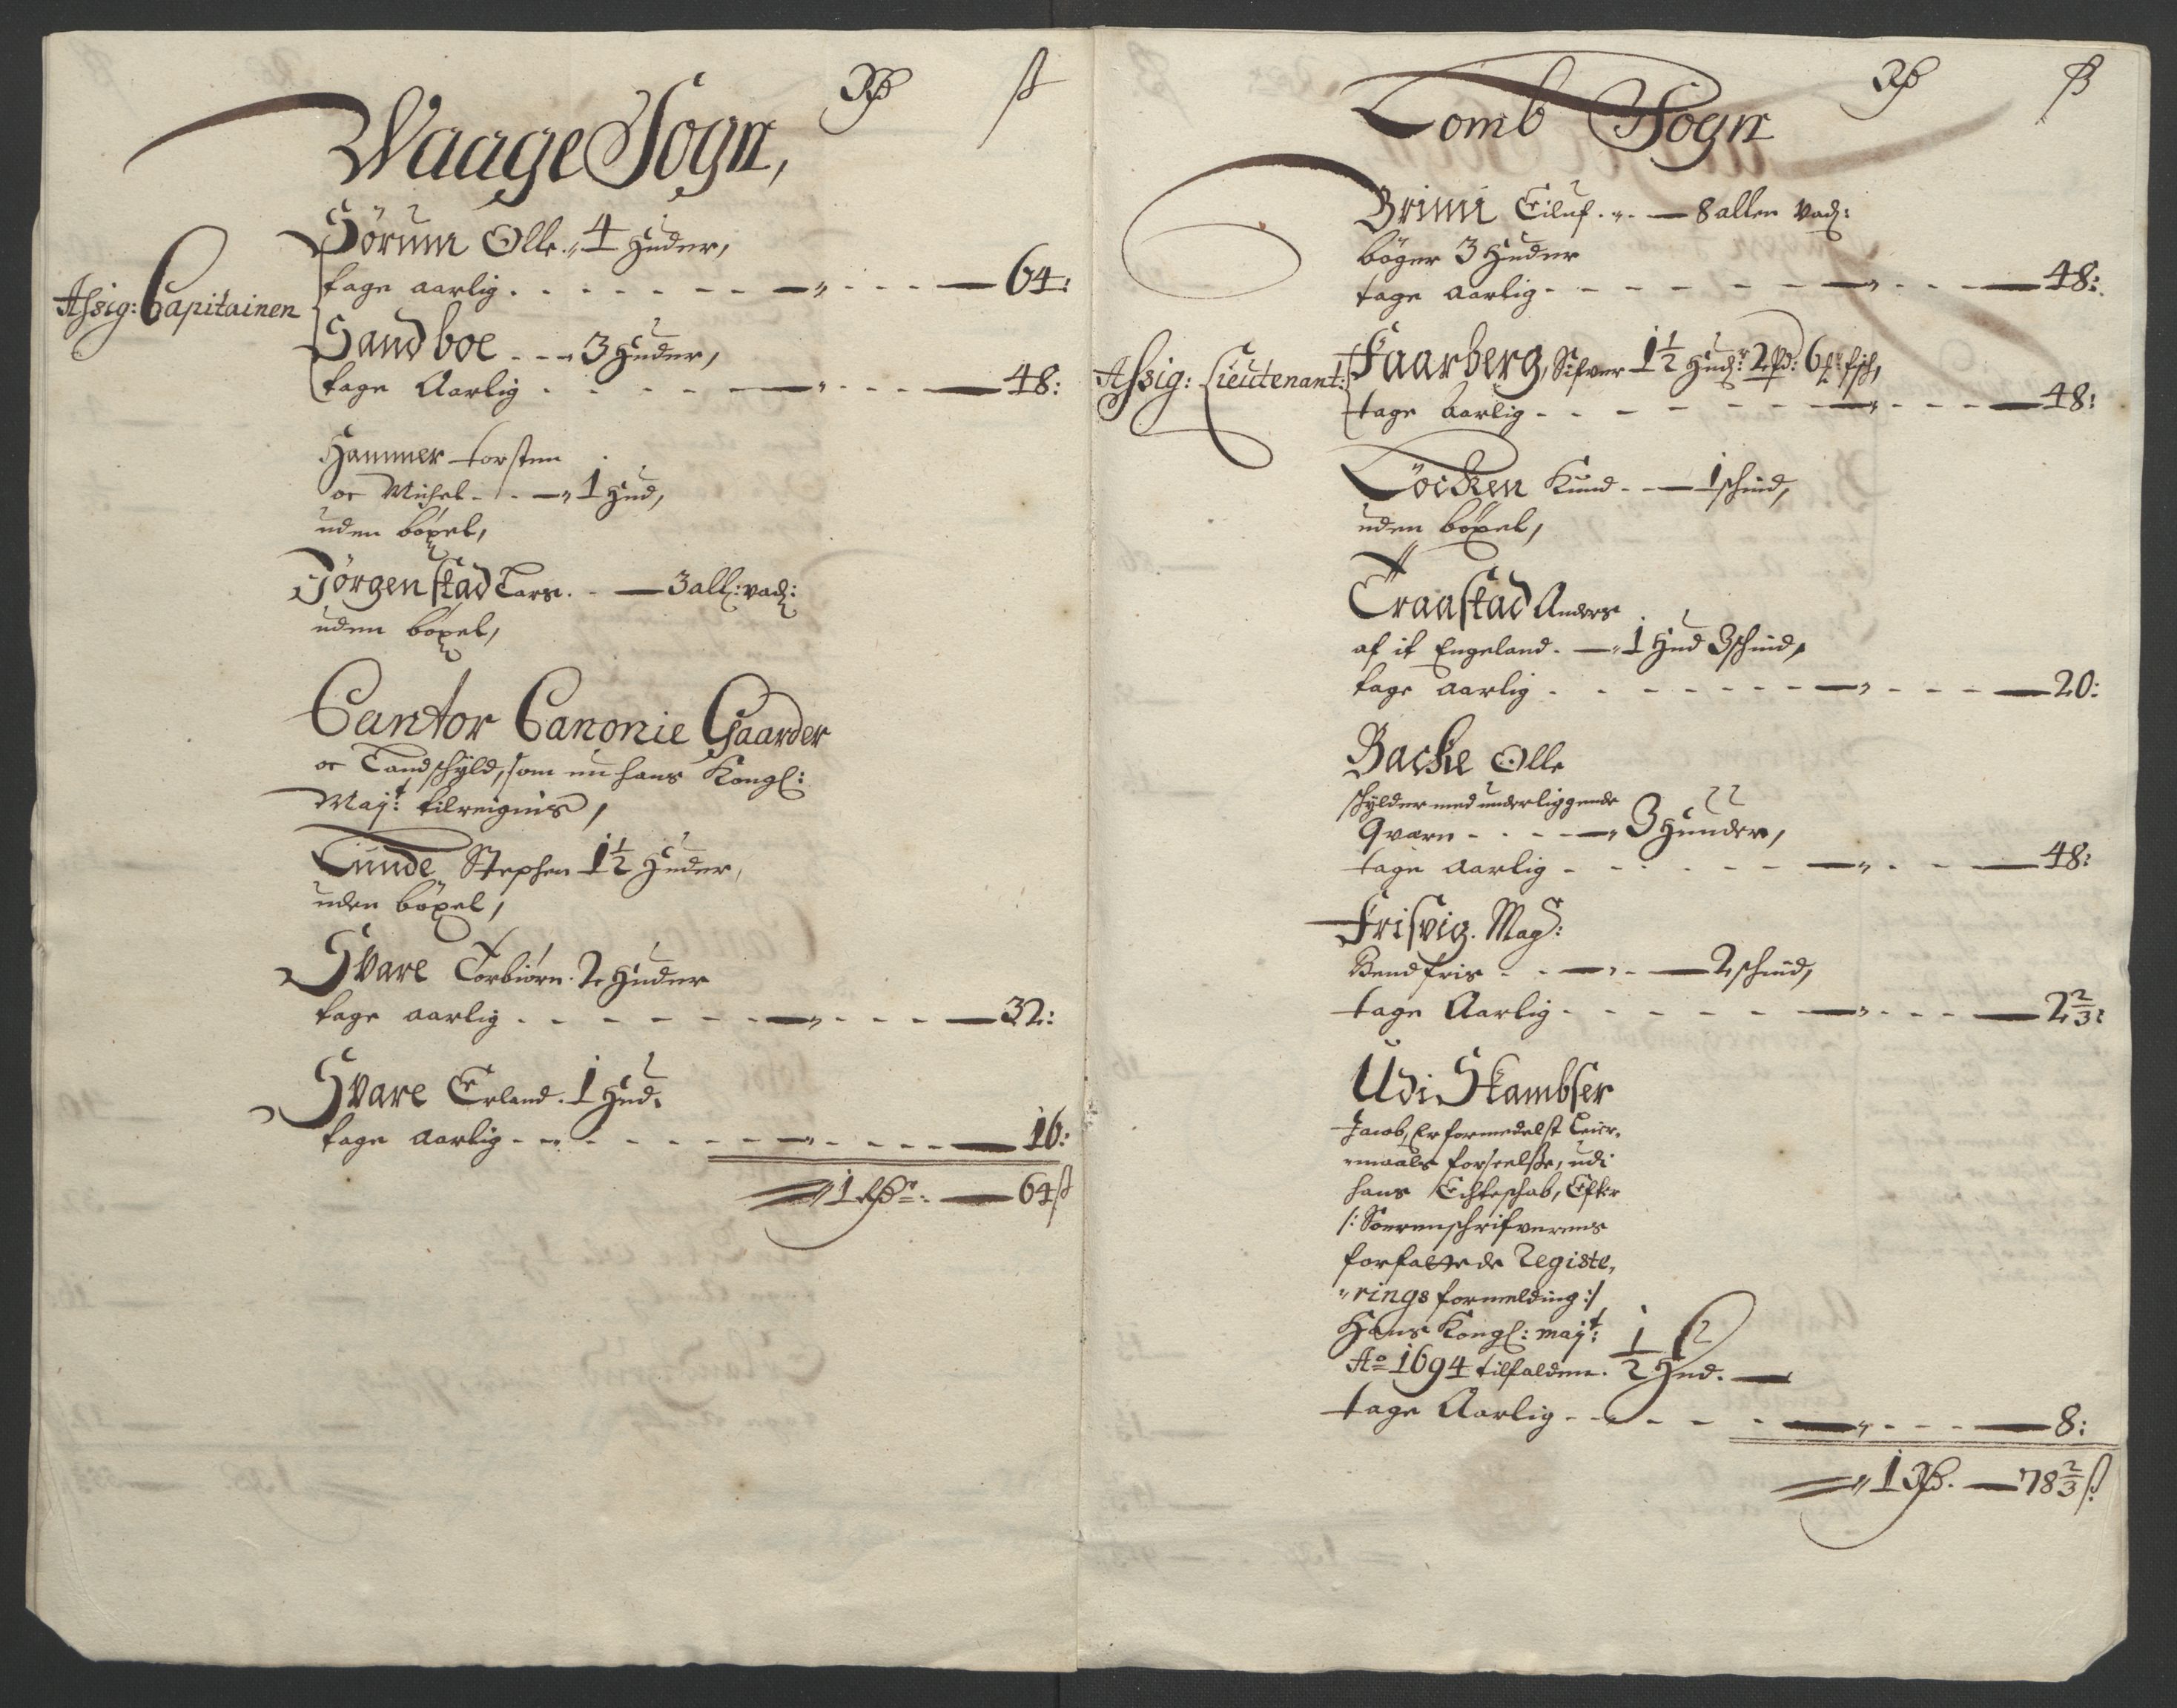 Rß ß
Waage Sogn,
Sörum Olle. 4 Huder,
tage aarlig . . . . . . — „ . . . — 64:
Assig: Capitainen
Sandboe . . . 3 Huder,
tage Aarlig . . . . . — „ . . . — 48:
Hammer torsten
oc Michel . . — „ 1 Hud,
uden böxel,
Jörgenstad Lars. . — 3 all: vad:
uden böxel,
Cantor Canonie Gaarder
oc Landschyld, som nu hans Kongl:
Majt: tilreignis,
Lunde Stephen 1½ Huder,
uden böxel,
Svare Torbiörn. 2 Huder
tage aarlig . . . . . . — „ . . . — 32:
Svare Erland. 1 Hud.
tage aarlig . . . . . . — „ . . . — 16:
1 Rßr: — 64 ß
Rß ß
Lomb Sogn
Brimi Eiluf. „ . — 8 allen vad:
böger 3 Huder
tage Aarlig . . . . . . — „ . . . — 48:
Assig: Lieutenant:
Faarberg, Sifver 1½ Hudr 2 pd: 6 fisch,
tage Aarlig . . . . . . — „ . . . — 48:
Löcken Knud . . — 1 schind,
uden böxel,
Traastad Anders
af it Engeland. — „ 1 Hud 3 schind,
tage aarlig . . . . . . — „ . . . — 20:
Backe Olle
schylder med underliggende
Qværn . . . — „ 3 Hunder,
tage aarlig . . . . . . — „ . . . — 48:
Frisvig. Mag:
Bendfris . . — „ . — 2 schind,
tage Aarlig . . . . . . — „ . . . — 2⅔:
Udi Skambser
Jacob, Er formedelst Leier-
„maals forseelsse, udi
hans Echteschab, Efter
/: Soerenschrifverens
forfattede Registe,
„rings formelding :/
Hans Kongl: majt:
Ao 1694 tilfalden. ½ Hud. —
tage Aarlig . . . . . — „ . . . — 8:
1 Rß. — 78⅔ ß